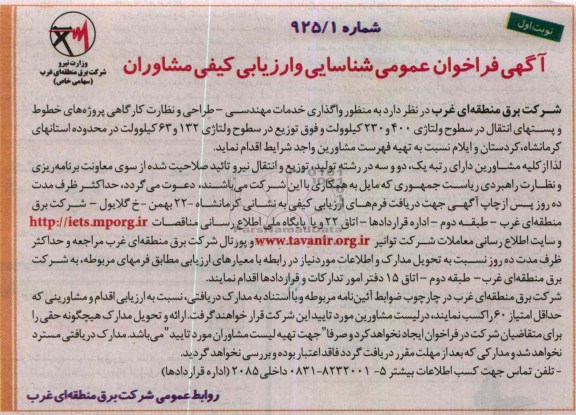 شماره ۹۲۵/۱
نوبت اول
وزارت نیرو
شرکت برق منطقه‌ای غرب
(سهامی خاص)
آگهی فراخوان عمومی شناسایی وارزیابی کیفی مشاوران
شرکت برق منطقه‌ای غرب در نظر دارد به منظور واگذاری خدمات مهندسی – طراحی و نظارت کارگاهی پروژه‌های خطوط
و پستهای انتقال در سطوح ولتاژی ۴۰۰ و ۲۳۰ کیلوولت و فوق توزیع در سطوح ولتاژی ۱۳۲ و ۶۳ کیلوولت در محدوده استانهای
کرمانشاه، کردستان و ایلام نسبت به تهیه فهرست مشاورین واجد شرایط اقدام نماید.
لذا از کلیه مشاورین دارای رتبه یک، دو و سه در رشته تولید، توزیع و انتقال نیرو تائید صلاحیت شده از سوی معاونت برنامه‌ریزی
و نظارت راهبردی ریاست جمهوری که مایل به همکاری با این شرکت می‌باشند، دعوت می‌گردد، حداکثر ظرف مدت
ده روز پس از چاپ آگهی جهت دریافت فرمهای ارزیابی کیفی به نشانی کرمانشاه –۲۲ بهمن – خ گلایول – شرکت برق
منطقه‌ای غرب – طبقه دوم – اداره قراردادها – اتاق ۲۲ و یا پایگاه ملی اطلاع رسانی مناقصات http://iets.mporg.ir
و سایت اطلاع رسانی معاملات شرکت توانیر www.tavanir.org.ir و پورتال شرکت برق منطقه‌ای غرب مراجعه و حداکثر
ظرف مدت ده روز نسبت به تحویل مدارک و اطلاعات موردنیاز در رابطه با معیارهای ارزیابی مطابق فرمهای مربوطه، به شرکت
برق منطقه‌ای غرب – طبقه دوم – اتاق ۱۵ دفتر امور تدارکات و قراردادها اقدام نمایند.
شرکت برق منطقه‌ای غرب در چارچوب ضوابط آئین‌نامه مربوطه و با استناد به مدارک دریافتی، نسبت به ارزیابی اقدام و مشاورینی که
حداقل امتیاز ۶۰ را کسب نمایند، در لیست مشاورین مورد تایید این شرکت قرار خواهند گرفت. ارائه و تحویل مدارک هیچگونه حقی را
برای متقاضیان شرکت در فراخوان ایجاد نخواهد کرد و صرفا" جهت تهیه لیست مشاوران مورد تایید" می‌باشد. مدارک دریافتی مسترد
نخواهد شد و مدارکی که بعد از مهلت مقرر دریافت گردد فاقد اعتبار بوده و بررسی نخواهد گردید.
– تلفن تماس جهت کسب اطلاعات بیشتر ۵- ۸۲۳۲۰۰۱-۰۸۳۱ داخلی ۲۰۸۵ (اداره قراردادها)
روابط عمومی شرکت برق منطقه‌ای غرب